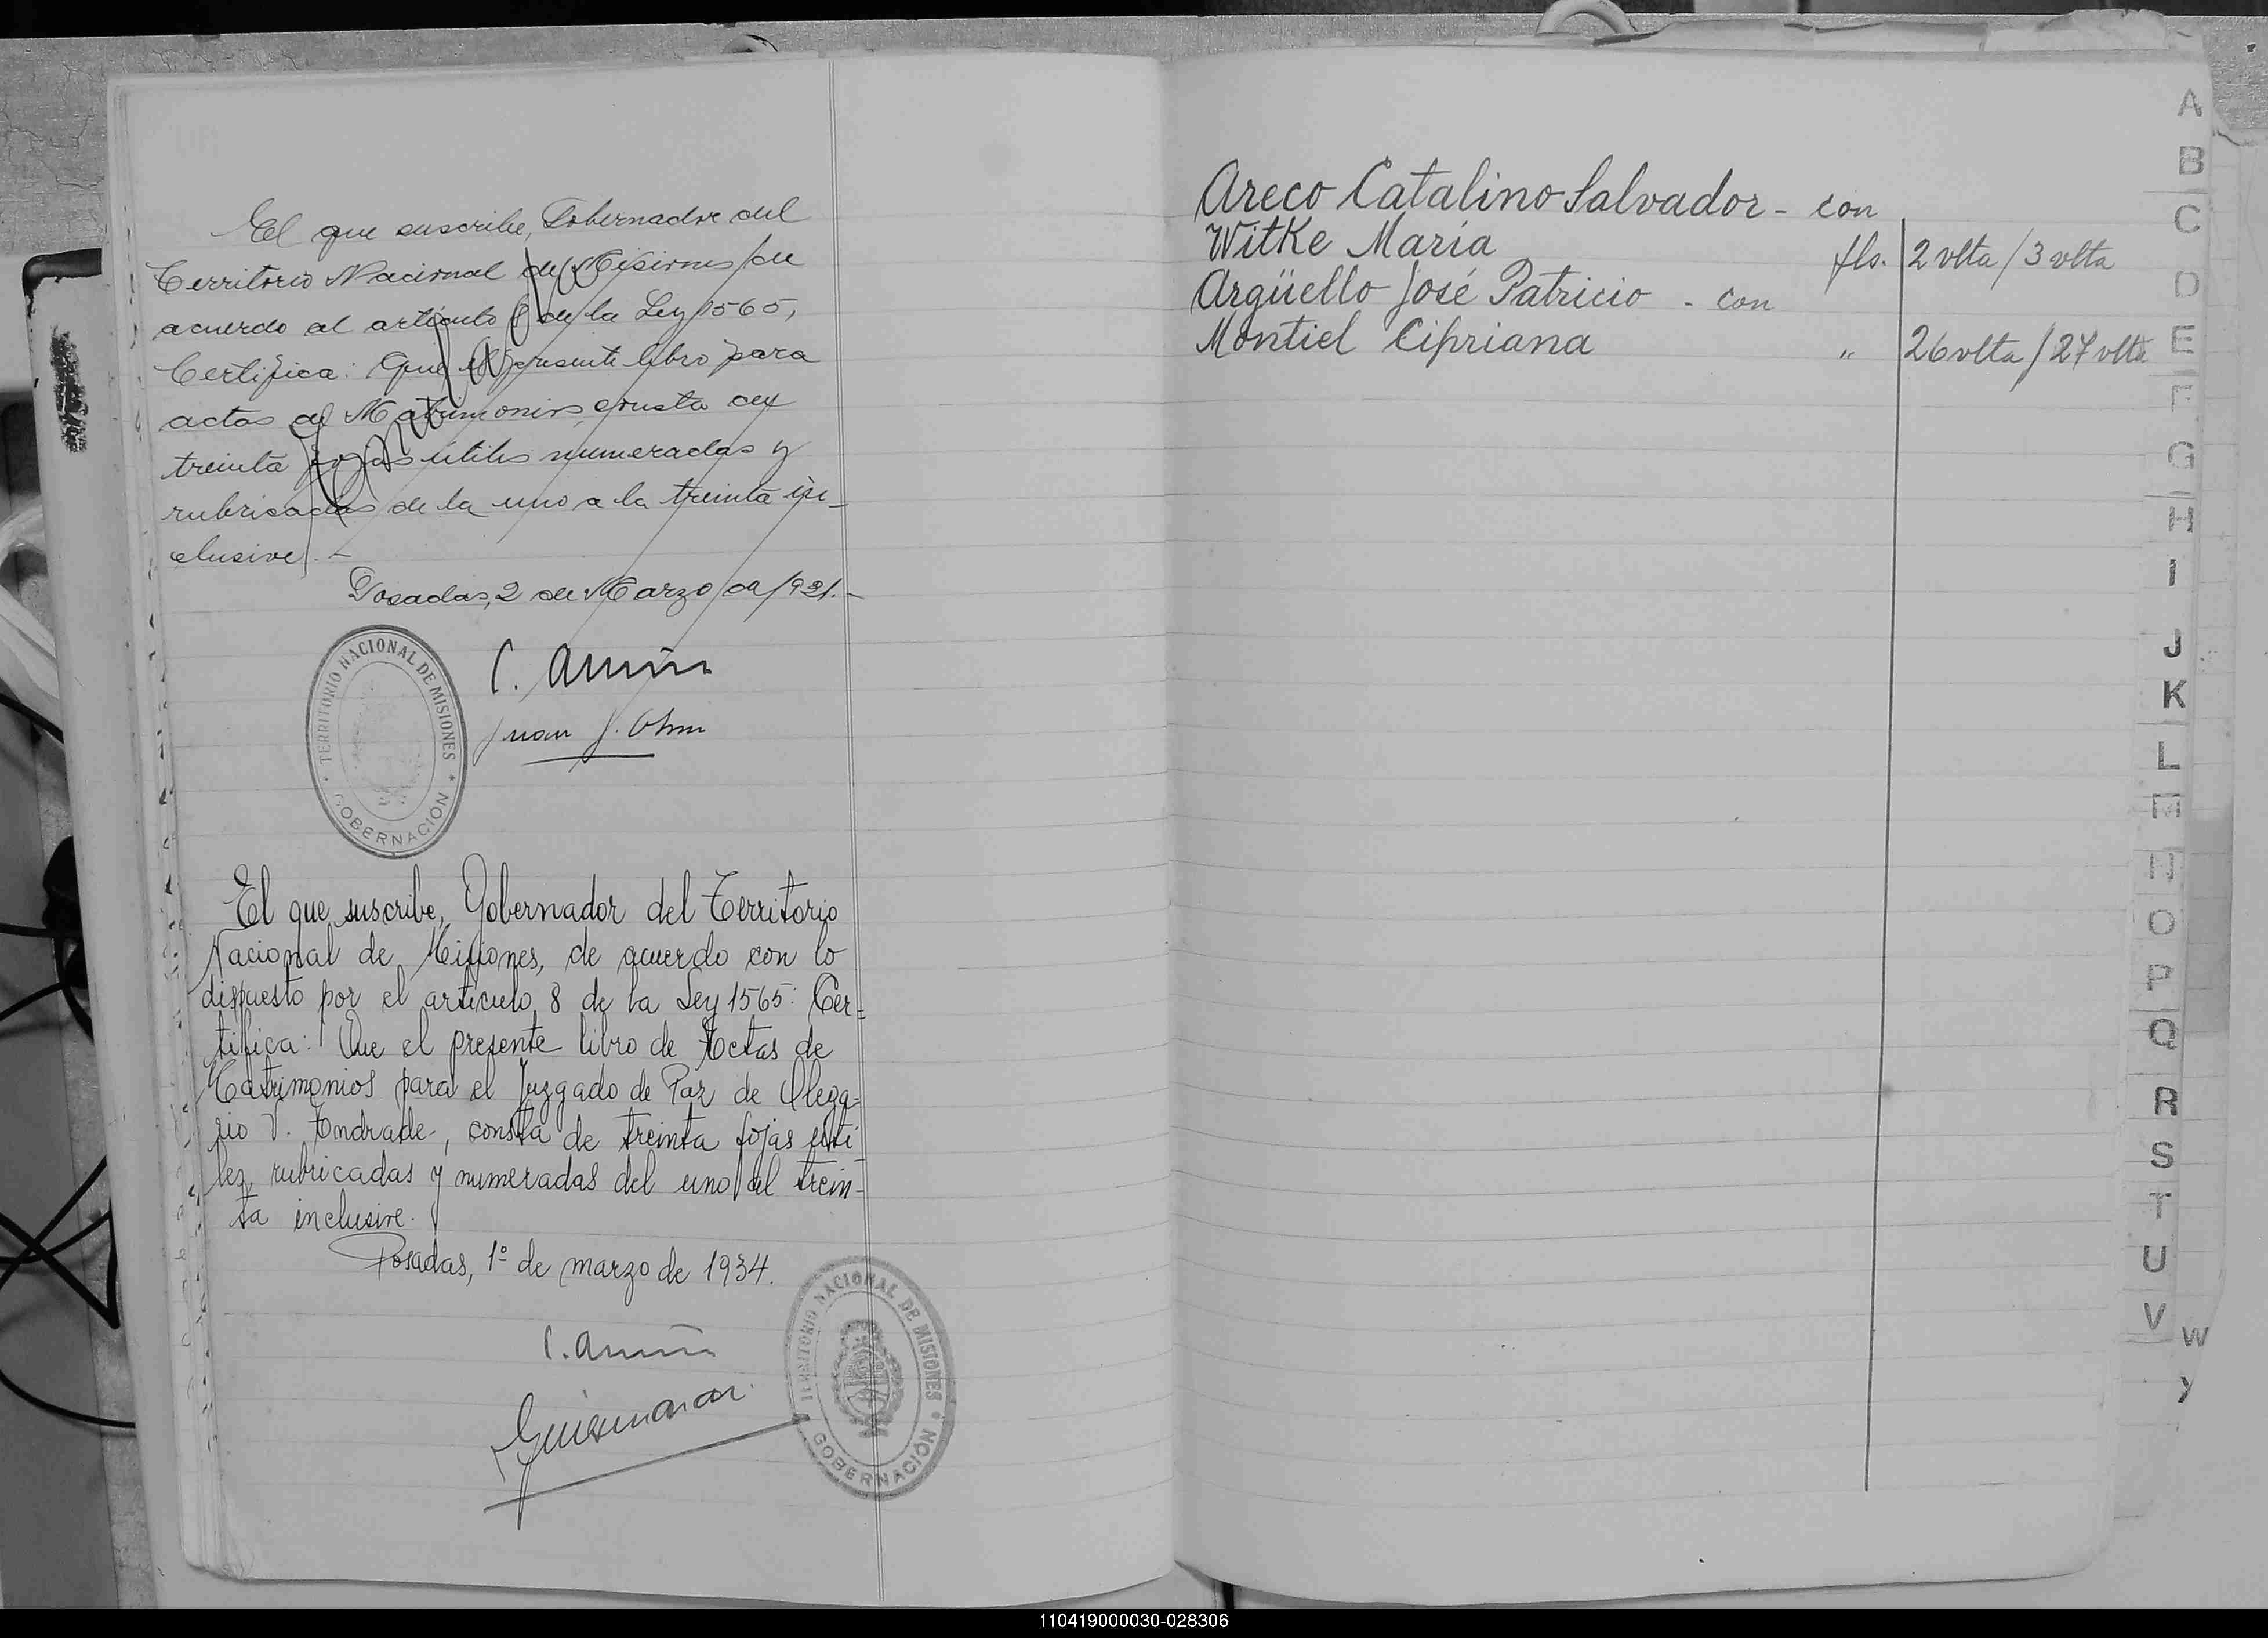 El que suscribe, Gobernador del
Territorio Nacional de Misiones, de
acuerdo al artículo 8 de la Ley 1565,
Certifica: Que el presente libro para
actas de Matrimonios, consta de
treinta fojas útiles numeradas y
rubricadas de la uno a la treinta in-
clusive. -
Posadas, 2 de Marzo de 1931.-
TERRITORIO NACIONAL DE MISIONES
GOBERNACIÓN
Juan J.
El que suscribe, Gobernador del Territorio
Nacional de Misiones, de acuerdo con lo
dispuesto por el artículo 8 de la Ley 1565: Cer=
tifica: Que el presente libro de Actas de
Matrimonios para el Juzgado de Paz de Olega-
rio V. Andrade-, consta de treinta fojas úti-
les, rubricadas y numeradas del uno al trein-
ta inclusive.
Posadas, 1º de marzo de 1934.
TERRITORIO NACIONAL DE MISIONES
GOBERNACIÓN
Areco Catalino Salvador - con
Witke María fls. 2 vlta / 3 vlta
Argüello José Patricio - con
Montiel Cipriana " 26 vlta / 27 vlta
A
B
C
D
E
F
G
H
I
J
K
L
M
N
O
P
Q
R
S
T
U
V
W
Y
110419000030-028306